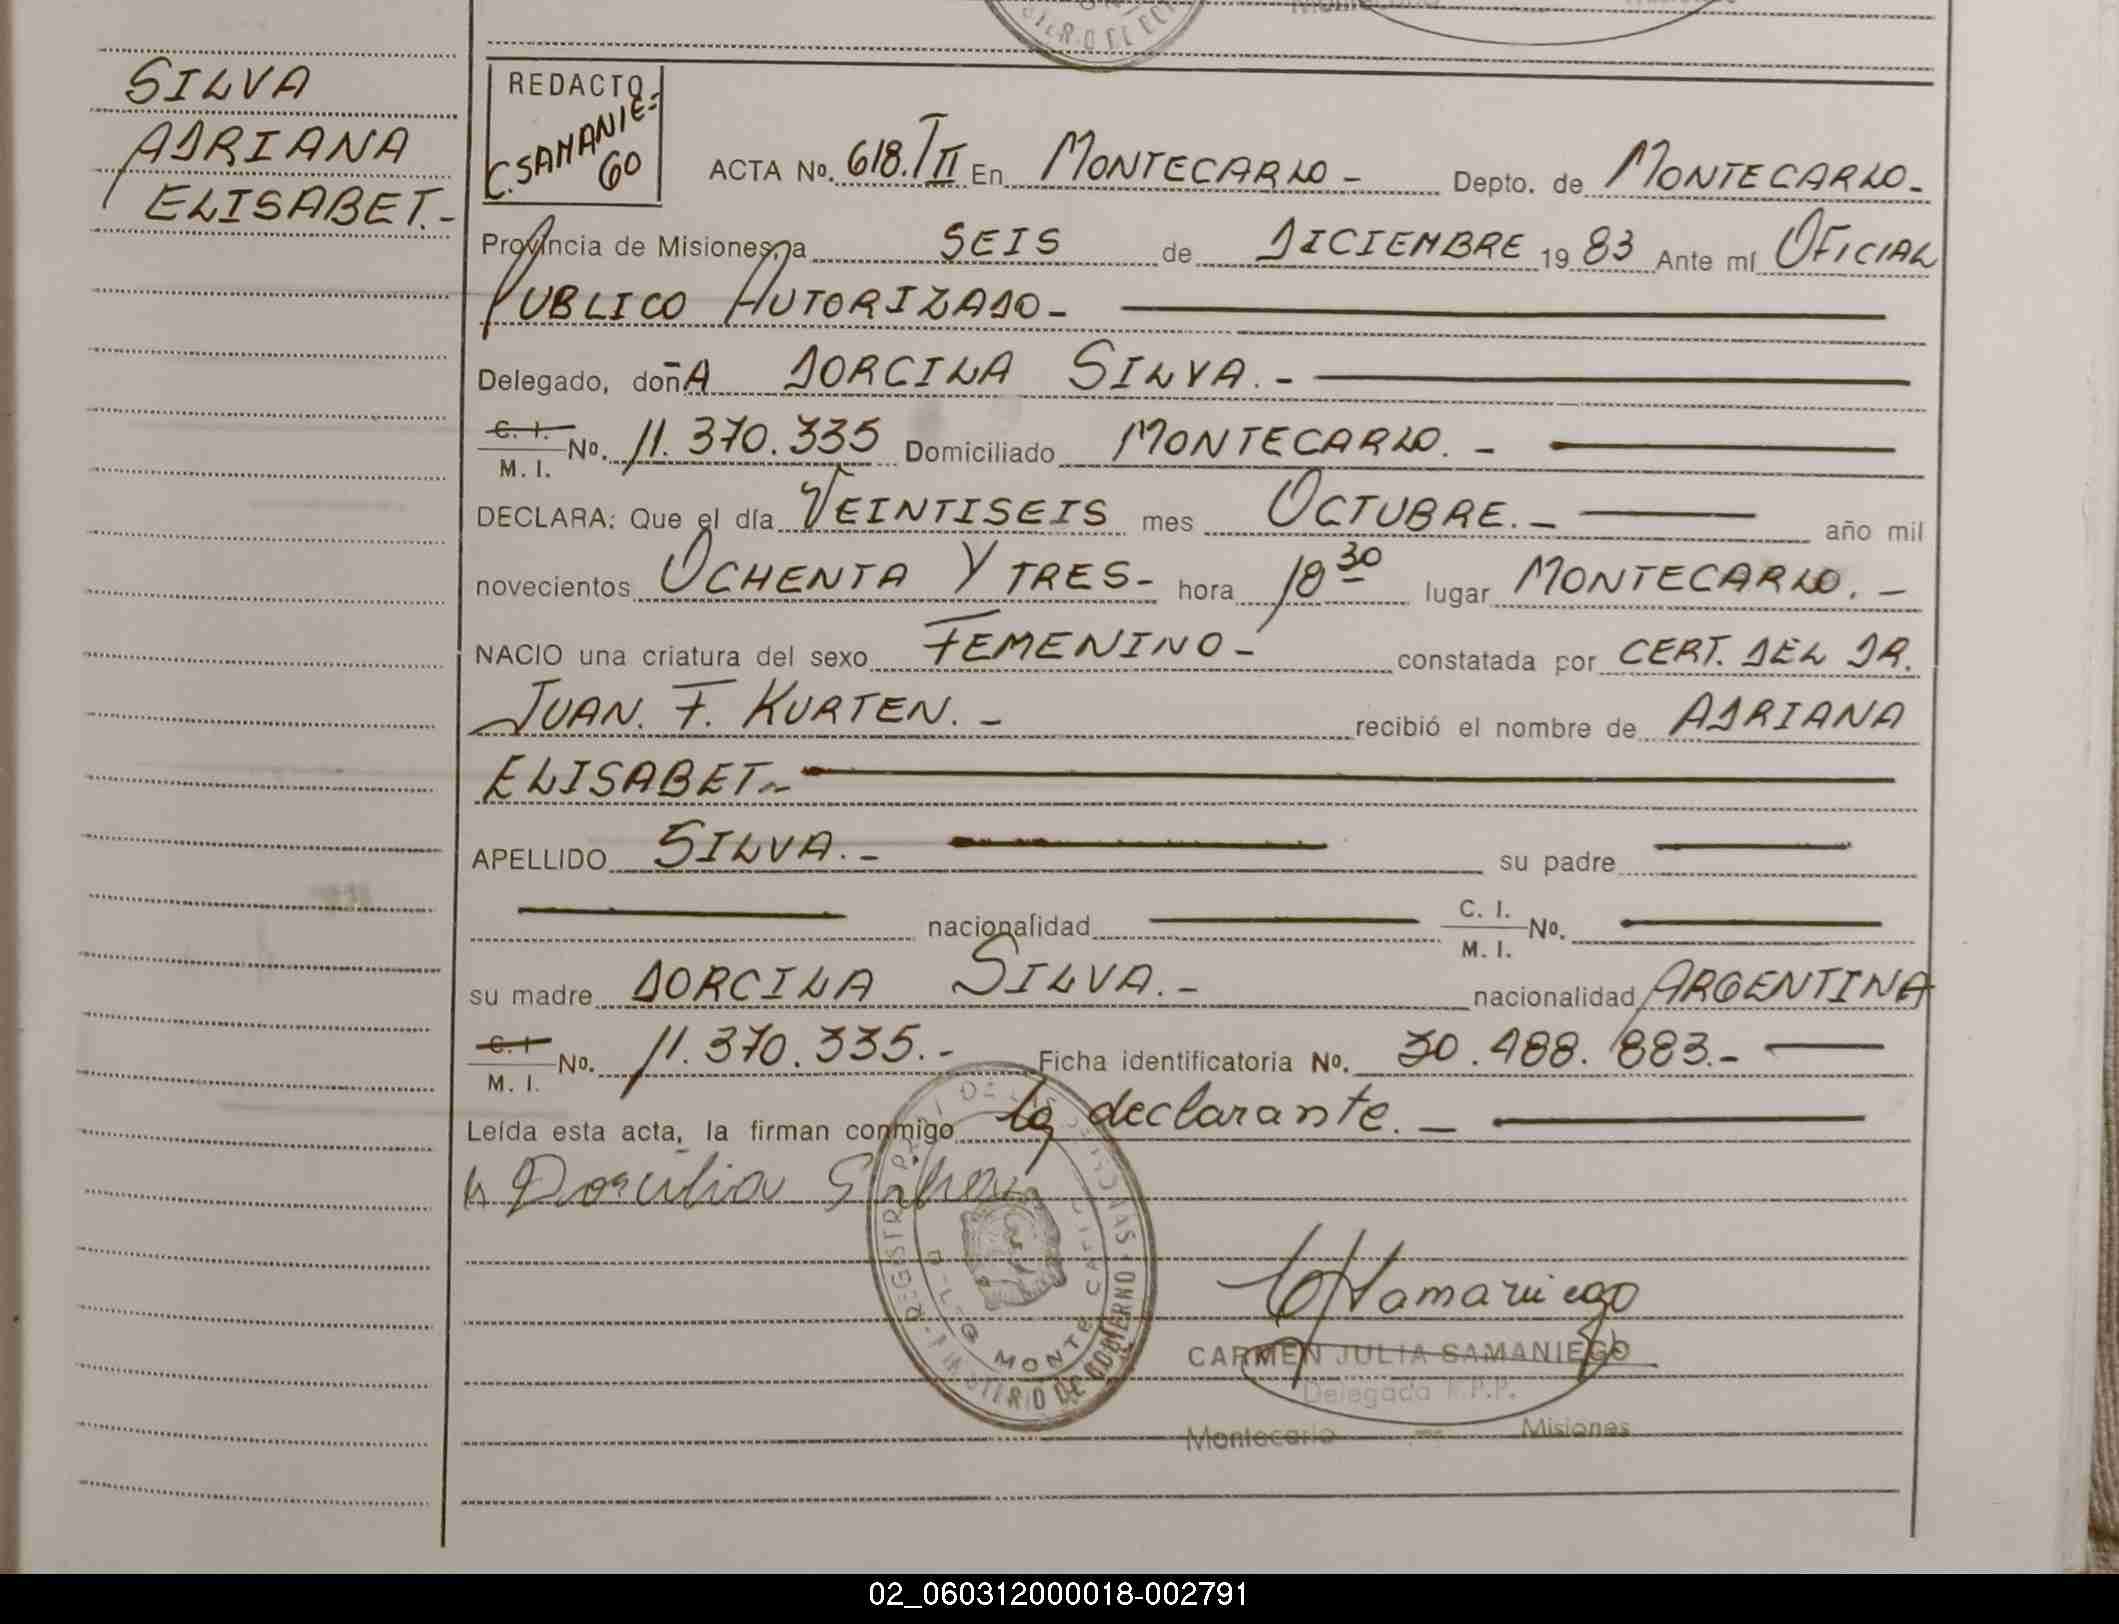 SILVA
ADRIANA
ELISABET.-
REDACTO
C. SAMANIE=
GO
ACTA No. 618. T II En MONTECARLO - Depto. de MONTECARLO-
Provincia de Misiones, a SEIS de DICIEMBRE 19 83 Ante mí OFICIAL
PUBLICO AUTORIZADO-
Delegado, doñA DORCILA SILVA.-
C. I. / M. I. No. 11.370.335 Domiciliado MONTECARLO. -
DECLARA: Que el día VEINTISEIS mes OCTUBRE. - año mil
novecientos OCHENTA Y TRES- hora 18 30 lugar MONTECARLO. -
NACIO una criatura del sexo FEMENINO - constatada por CERT. DEL DR.
JUAN. F. KURTEN. - recibió el nombre de ADRIANA
ELISABET-
APELLIDO SILVA. - su padre
nacionalidad C. I. / M. I. No.
su madre DORCILA SILVA. - nacionalidad ARGENTINA
C. I / M. I. No. 11.370.335.- Ficha identificatoria No. 30.488.883.-
Leída esta acta, la firman conmigo la declarante. -
Dorcilia Silva
CARMEN JULIA SAMANIEGO
Delegada R.P.P.
Montecarlo - Misiones
02_060312000018-002791